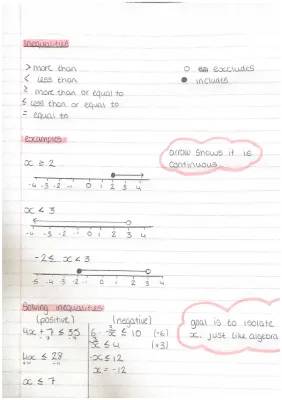 Inequalities
> more than
< less than
≥ more than or equal to
≤ less than or equal to
= equal to
○ excludes
● includes
examples
arrow shows it is
continuous
x ≥ 2
-4 -3 -2 -1 0 1 2 3 4
x < 3
-4 -3 -2 -1 0 1 2 3 4
-2 ≤ x < 3
-5 -4 -3 -2 -1 0 1 2 3 4
Solving inequalities
(positive)
4x + 7 ≤ 35
-7 -7
4x ≤ 28
x ≤ 7
(negative)
≤ 10 (-6)
≤ 4 (×3)
-x ≤ 12
x = -12
goal is to isolate
x. just like algebra